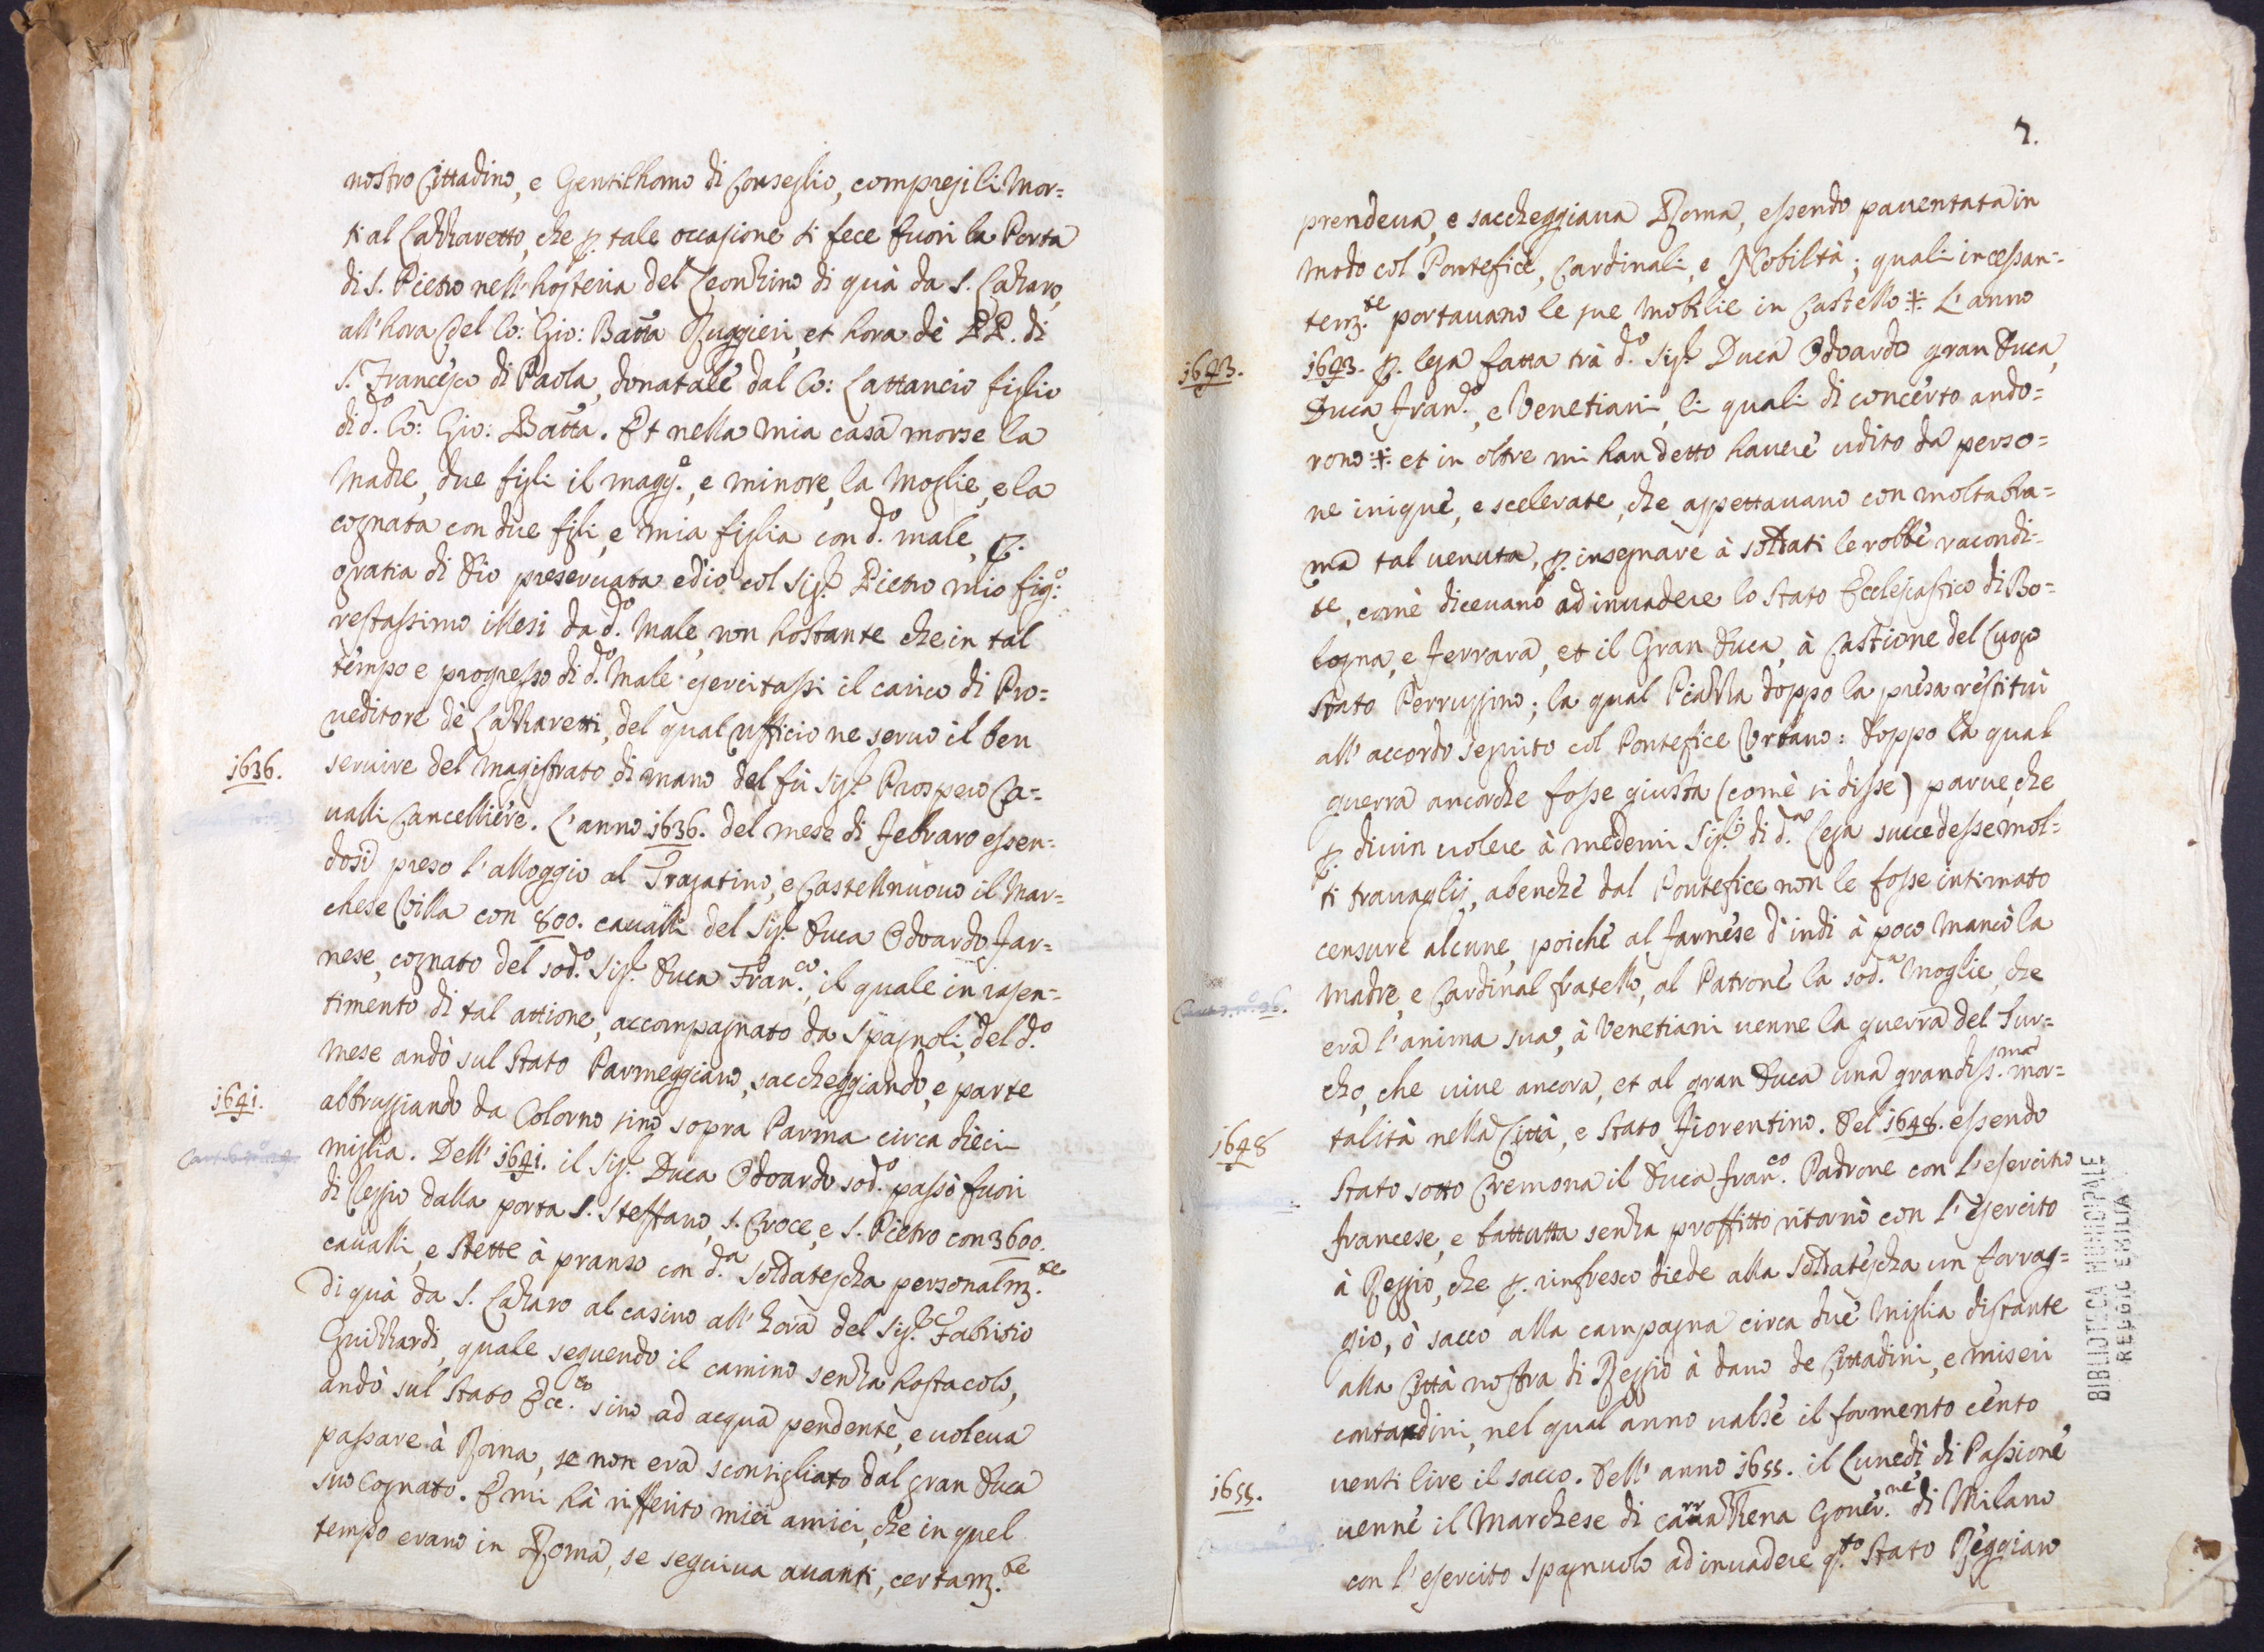 nostro Cittadino, e Gentilhomo di Conseglio, compresi li Mor=
ti al Lazzaretto, che p. tale occasione si fece fuori la Porta
di S. Pietro nell'hosteria del Leonzino di quà da S. Lazaro,
all'hora del Co: Gio: Batta Ruggieri, et hora dè PP. di
S. Francesco di Paola, donatale dal Co: Lattancio figlio
di d.o Co: Gio: Batta. Et nella mia casa morse la
Madre, due figli il magg.e, e minore, la Moglie, e la
cognata con due figli, e mia figlia con d.o male, p.
gratia di Dio preservata ed io col Sig.r Pietro mio fig.o
restassimo illesi da d.o Male, non hostante che in tal
tempo e progresso di d.o Male esercitassi il carico di Pro=
veditore dè Lazzaretti, del qual ufficio ne servo il ben
1636.
servire del Magistrato di mano del fù Sig.r Prospero Ca=
valli Cancelliere. L'anno 1636. del mese di Febraro essen=
dosi preso l'alloggio al Fragatino, e Castelnuovo il Mar=
chese Villa con 800. cavalli del Sig.r Duca Odoardo Far=
nese, cognato del sod.o Sig.r Duca Fran.co, il quale in rasen=
timento di tal attione, accompagnato da Spagnoli, del d.o
mese andò sul Stato Parmeggiano, saccheggiando, e parte
1641.
abbrugiando da Colorno sino sopra Parma circa dieci
miglia. Dell' 1641. il Sig.r Duca Odoardo sod.o passò fuori
di Reggio dalla porta S. Steffano, S. Croce, e S. Pietro con 3600.
cavalli, e stette à pranso con d.a soldatescha personalm.te
di quà da S. Lazaro al casino all'hora del Sig.r Fabritio
Guizzardi, quale seguendo il camino senza hostacolo,
andò sul Stato Ecc.co sino ad acqua pendente, e voleva
passare à Roma, se non era sconsigliato dal gran Duca
suo Cognato. E mi hà rifferito miei amici, che in quel
tempo erano in Roma, se seguiva avanti, certam.te
2.
prendeva, e saccheggiava Roma, essendo paventata in
modo col Pontefice, Cardinali, e Nobiltà; quali incessan=
tem.te portavano le sue mobilie in Castello ⁜. L'anno
1643.
1643. p. lega fatta trà d.o Sig.r Duca Odoardo gran Duca,
Duca Fran.co, e Venetiani, li quali di concerto ando=
rono ⁜ et in oltre mi han detto havere udito da perso=
ne inique, e scelerate, che aspettavano con molta bra=
ma tal venuta, p. insegnare à soldati le robbe racondi=
te, comè dicevano ad invadere lo Stato Ecclesiastico di Bo=
logna, e Ferrara, et il Gran Duca, à Castione del Luogo
Stato Perrugino; la qual Piazza doppo la presa restitui
all'accordo seguito col Pontefice Urbano: Doppo la qual
guerra ancorche fosse giusta (comè si disse) parve, che
p. divin volere à medemi Sig.ri di d.a Lega succedesse mol=
ti travaglij, abenche dal Pontefice non le fosse intimato
censure alcune, poiche al Farnese d'indi à poco Mancò la
Madre, e Cardinal fratello, al Patrone la sod.a Moglie, che
era l'anima sua, à Venetiani venne la guerra del Tur=
cho, che vive ancora, et al gran Duca una grandiss.ma mor=
1648
talità nella Città, e Stato Fiorentino. Del 1648. essendo
Stato sotto Cremona il Duca Fran.co Padrone con l'esercito
francese, e battutta senza proffitto ritornò con l'esercito
à Reggio, che p. rinfresco diede alla Soldatescha un forrag=
gio, ò sacco alla campagna circa due Miglia distante
alla Città nostra di Reggio à dano de Cittadini, e miseri
contandini, nel qual anno valse il formento cento
1655.
venti lire il sacco. Dell' anno 1655. il Lunedì di Passione
venne il Marchese di Carrazena Gover.ne di Milano
con l'esercito Spagnuolo ad invadere q.to Stato Reggiano
BIBLIOTECA MUNICIPALE
REGGIO EMILIA